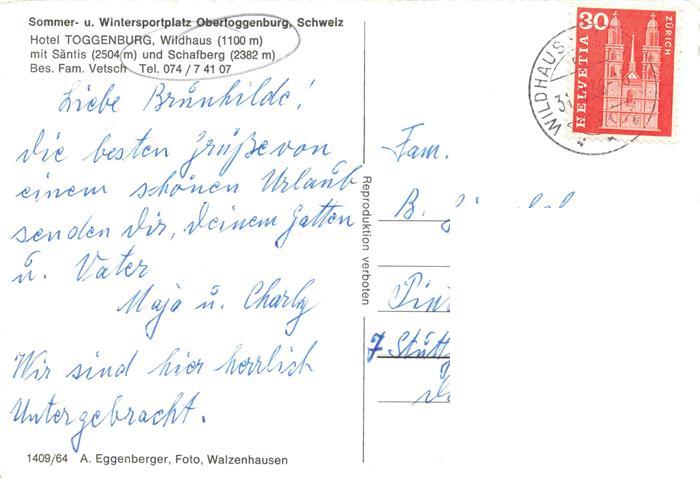 Sommer- u. Wintersportplatz Obertoggenburg, Schweiz
Hotel TOGGENBURG, Wildhaus (1100 m)
mit Säntis (2504 m) und Schafberg (2382 m)
Bes. Fam. Vetsch Tel. 074 / 7 41 07
Liebe Brunhilde!
die besten Grüße von
einem schönen Urlaub
senden dir, deinem Gatten
u. Vater
Maja u. Charly
Wir sind hier herrlich
Untergebracht.
1409/64 A. Eggenberger, Foto, Walzenhausen
Reproduktion verboten
30
HELVETIA
ZÜRICH
WILDHAUS
Fam.
B.
7